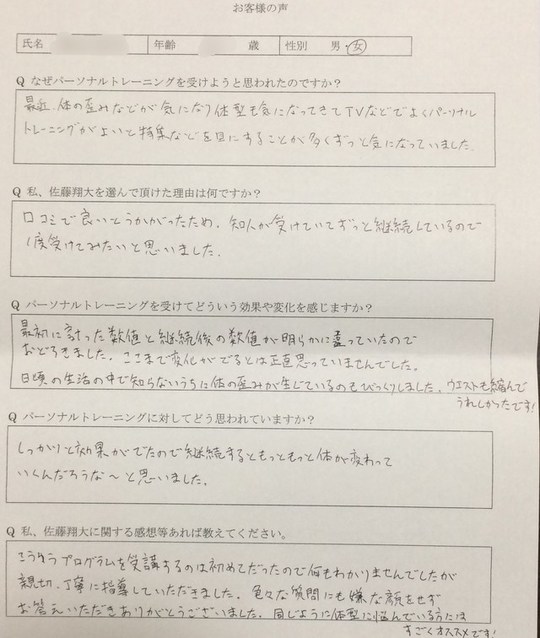 お客様の声
氏名 年齢 歳 性別 男・女
Q なぜパーソナルトレーニングを受けようと思われたのですか？
最近、体の歪みなどが気になり体型も気になってきてTVなどでよくパーソナル
トレーニングがよいと特集などを目にすることが多くずっと気になっていました。
Q 私、佐藤翔大を選んで頂けた理由は何ですか？
口コミで良いとうかがったため。知人が受けていてずっと継続しているので
1度受けてみたいと思いました。
Q パーソナルトレーニングを受けてどういう効果や変化を感じますか？
最初に計った数値と継続後の数値が明らかに違っていたので
おどろきました。ここまで変化がでるとは正直思っていませんでした。
日頃の生活の中で知らないうちに体の歪みが生じているのもびっくりしました。ウエストも縮んで
うれしかったです!
Q パーソナルトレーニングに対してどう思われていますか？
しっかりと効果がでたので継続するともっともっと体が変わって
いくんだろうな〜と思いました。
Q 私、佐藤翔大に関する感想等あれば教えてください。
こうゆうプログラムを受講するのは初めてだったので何もわかりませんでしたが
親切、丁寧に指導していただきました。色々な質問にも嫌な顔をせず
お答えいただきありがとうございました。同じように体型に悩んでいる方には
すごくオススメです!